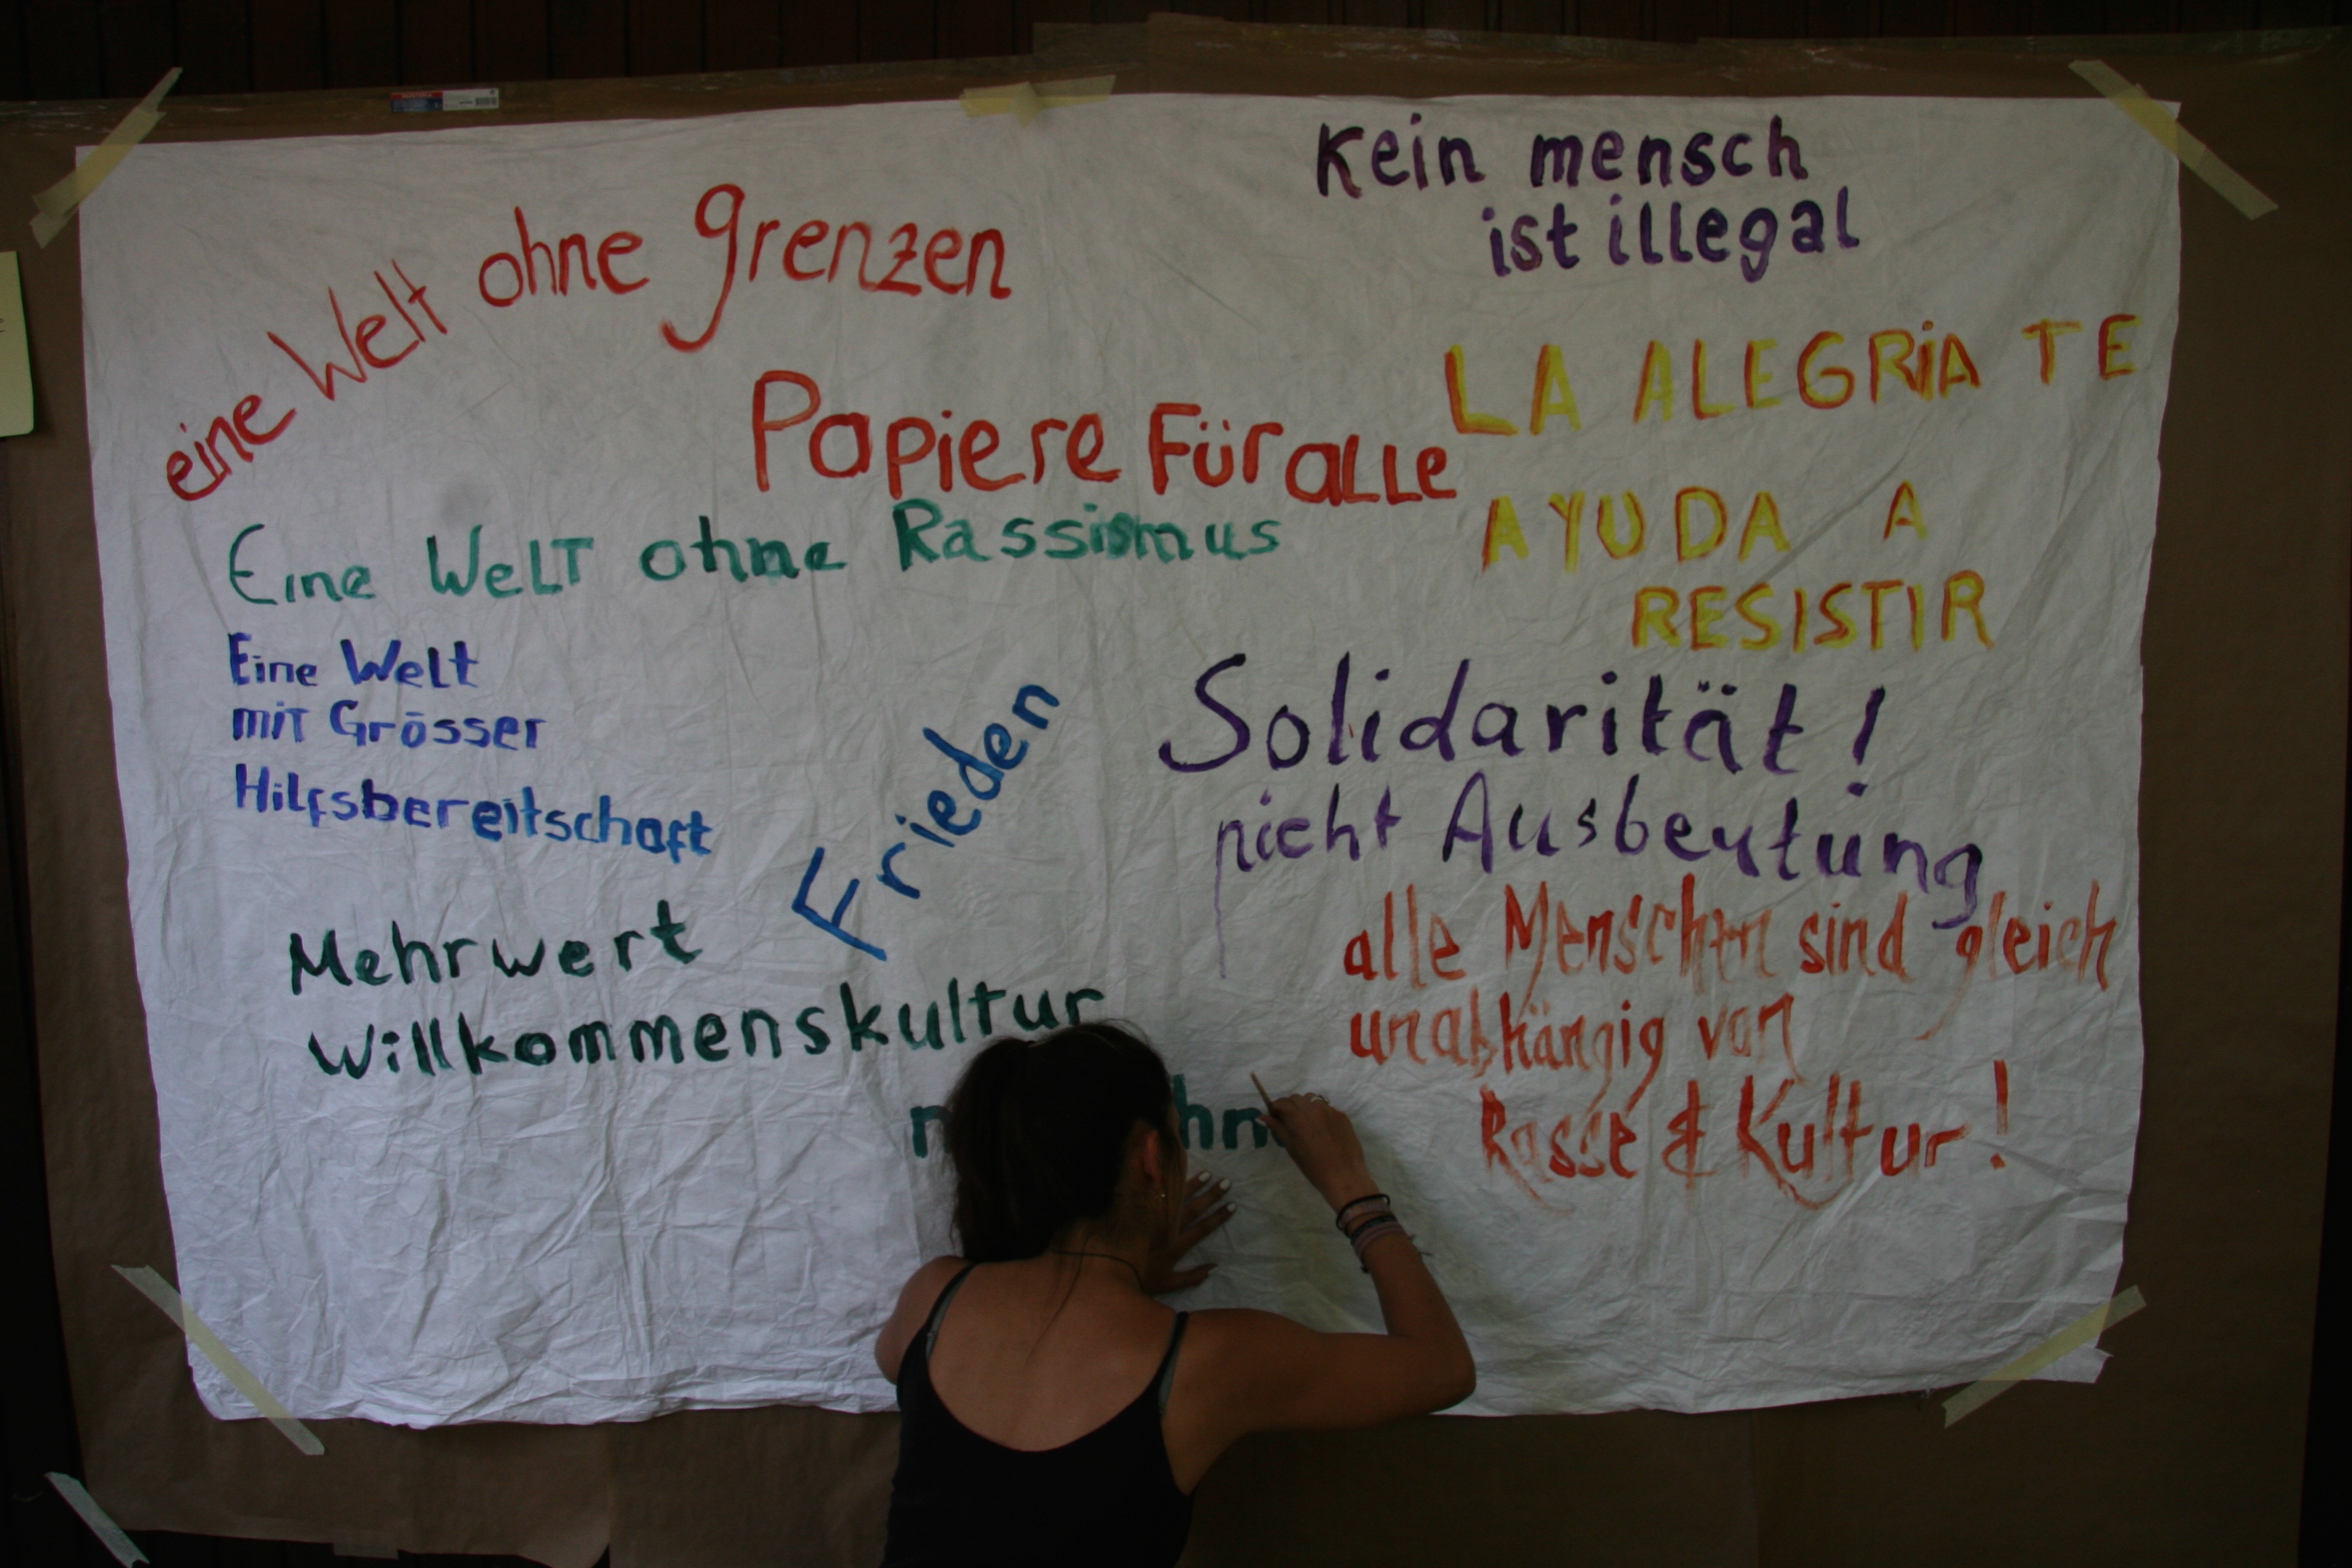 eine Welt ohne grenzen
Kein mensch
ist illegal
Papiere Für aLLe
LA ALEGRiA TE
AYUDA A
RESISTIR
Eine WeLT ohne Rassismus
Eine Welt
mit Grösser
Hilfsbereitschaft
Frieden
Solidarität!
nicht Ausbeutung
Mehrwert
Willkommenskultur
alle Menschen sind gleich
unabhängig von
Rasse & Kultur!